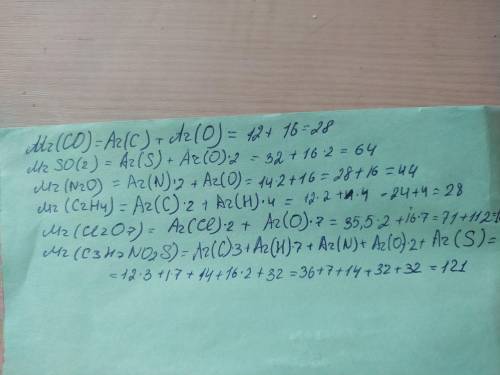 Mr(CO)=Ar(C)+Ar(O)= 12+16=28
Mr SO(2) = Ar(S)+Ar(O)·2=32+16·2=64
Mr(N2O) = Ar(N)·2+Ar(O)=14·2+16=28+16=44
Mr(C2H4)=Ar(C)·2+Ar(H)·4=12·2+1·4-24+4=28
Mr(Cl2O7)= Ar(Cl)·2+ Ar(O)·7=35,5·2+16·7=71+112=
Mr(C3H7NO2S)=Ar(C)3+Ar(H)·7+Ar(N)+Ar(O)·2+Ar(S)=
=12·3+1·7+14+16·2+32=36+7+14+32+32=121